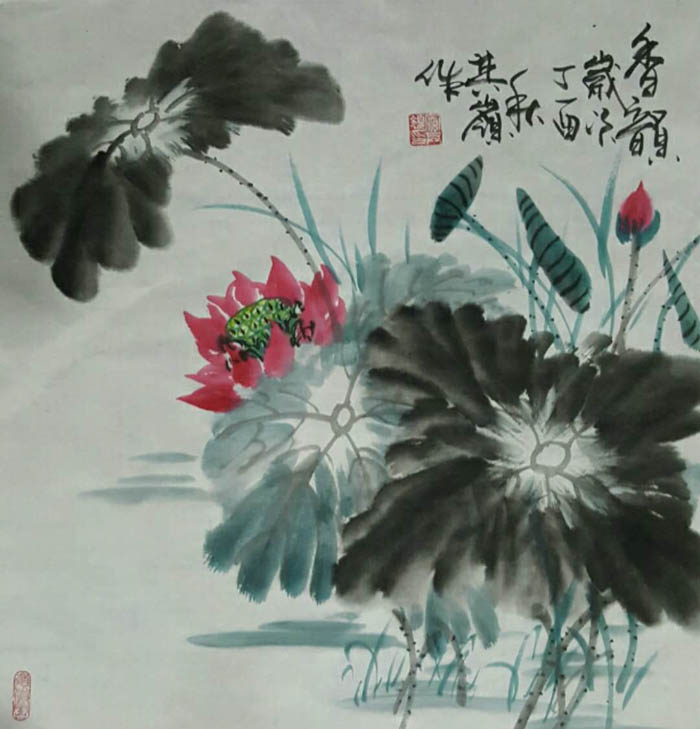 香韻
歲次
丁酉
秋
其嶺
作